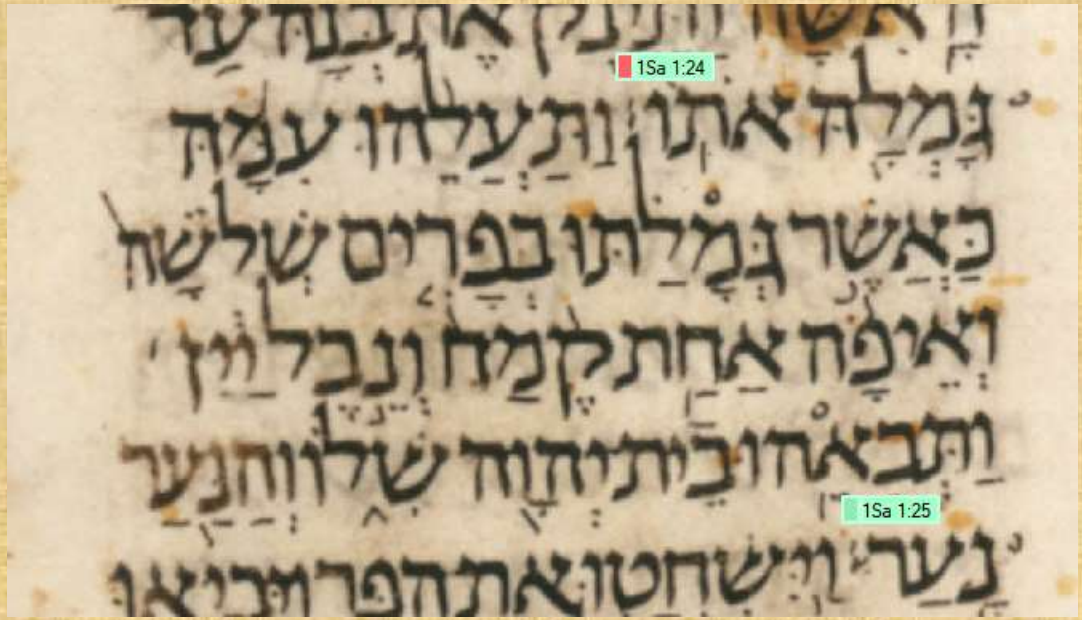 הָאִשָּׁה וַתֵּינֶק אֶת בְּנָהּ עַד
1Sa 1:24
גָּמְלָהּ אֹתוֹ׃ וַתַּעֲלֵהוּ עִמָּהּ
כַּאֲשֶׁר גְּמָלַתּוּ בְּפָרִים שְׁלֹשָׁה
וְאֵיפָה אַחַת קֶמַח וְנֵבֶל יַיִן
וַתְּבִאֵהוּ בֵית יְהוָה שִׁלוֹ וְהַנַּעַר
1Sa 1:25
נָעַר׃ וַיִּשְׁחֲטוּ אֶת הַפָּר וַיָּבִיאוּ